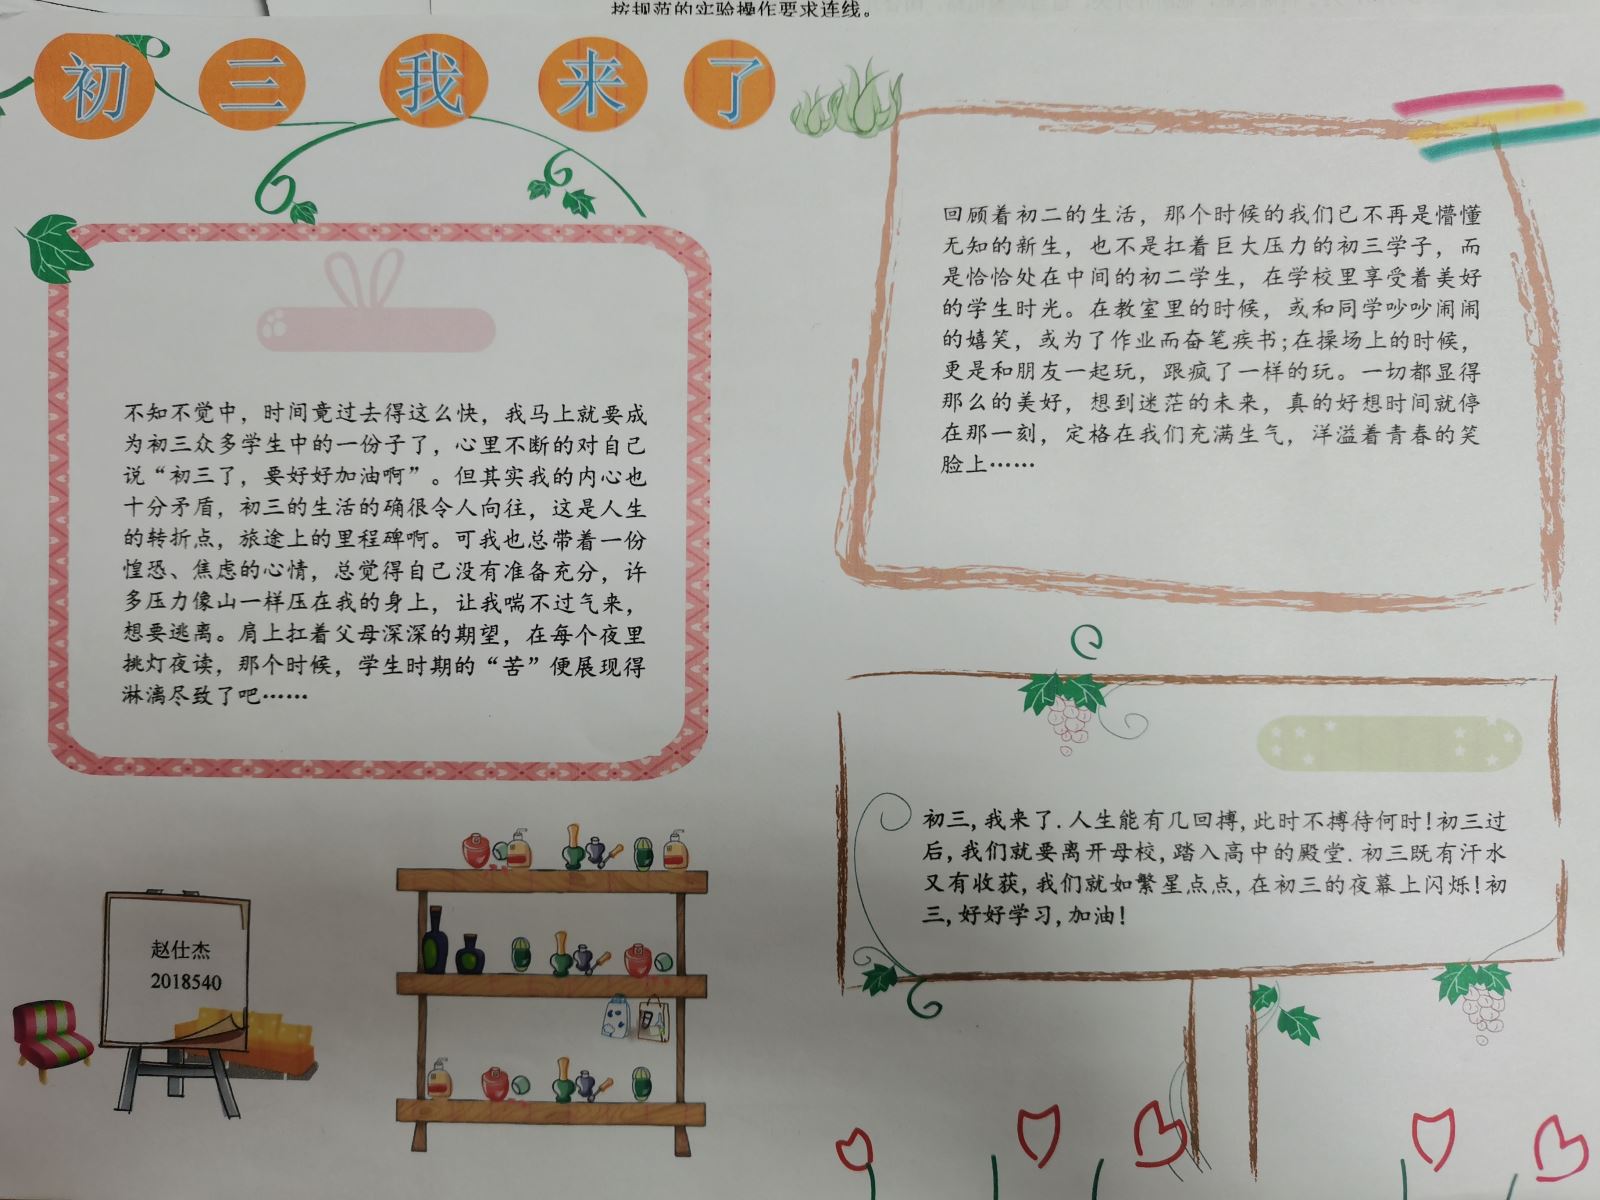 按规范的实验操作要求连线。
初三我来了
不知不觉中，时间竟过去得这么快，我马上就要成
为初三众多学生中的一份子了，心里不断的对自己
说“初三了，要好好加油啊”。但其实我的内心也
十分矛盾，初三的生活的确很令人向往，这是人生
的转折点，旅途上的里程碑啊。可我也总带着一份
惶恐、焦虑的心情，总觉得自己没有准备充分，许
多压力像山一样压在我的身上，让我喘不过气来，
想要逃离。肩上扛着父母深深的期望，在每个夜里
挑灯夜读，那个时候，学生时期的“苦”便展现得
淋漓尽致了吧……
回顾着初二的生活，那个时候的我们已不再是懵懂
无知的新生，也不是扛着巨大压力的初三学子，而
是恰恰处在中间的初二学生，在学校里享受着美好
的学生时光。在教室里的时候，或和同学吵吵闹闹
的嬉笑，或为了作业而奋笔疾书;在操场上的时候，
更是和朋友一起玩，跟疯了一样的玩。一切都显得
那么的美好，想到迷茫的未来，真的好想时间就停
在那一刻，定格在我们充满生气，洋溢着青春的笑
脸上……
初三,我来了.人生能有几回搏,此时不搏待何时!初三过
后,我们就要离开母校,踏入高中的殿堂.初三既有汗水
又有收获,我们就如繁星点点,在初三的夜幕上闪烁!初
三,好好学习,加油!
赵仕杰
2018540